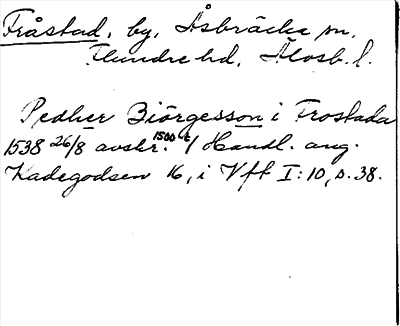 Fråstad, by, Åsbräcka sn.
Flundre hd, Älvsb. l.
Pedher Biörgesson i Frostada
1538 26/8 avskr. 1500-t / Handl. ang.
Kadegodsen 16, i Vft I:10, s. 38.